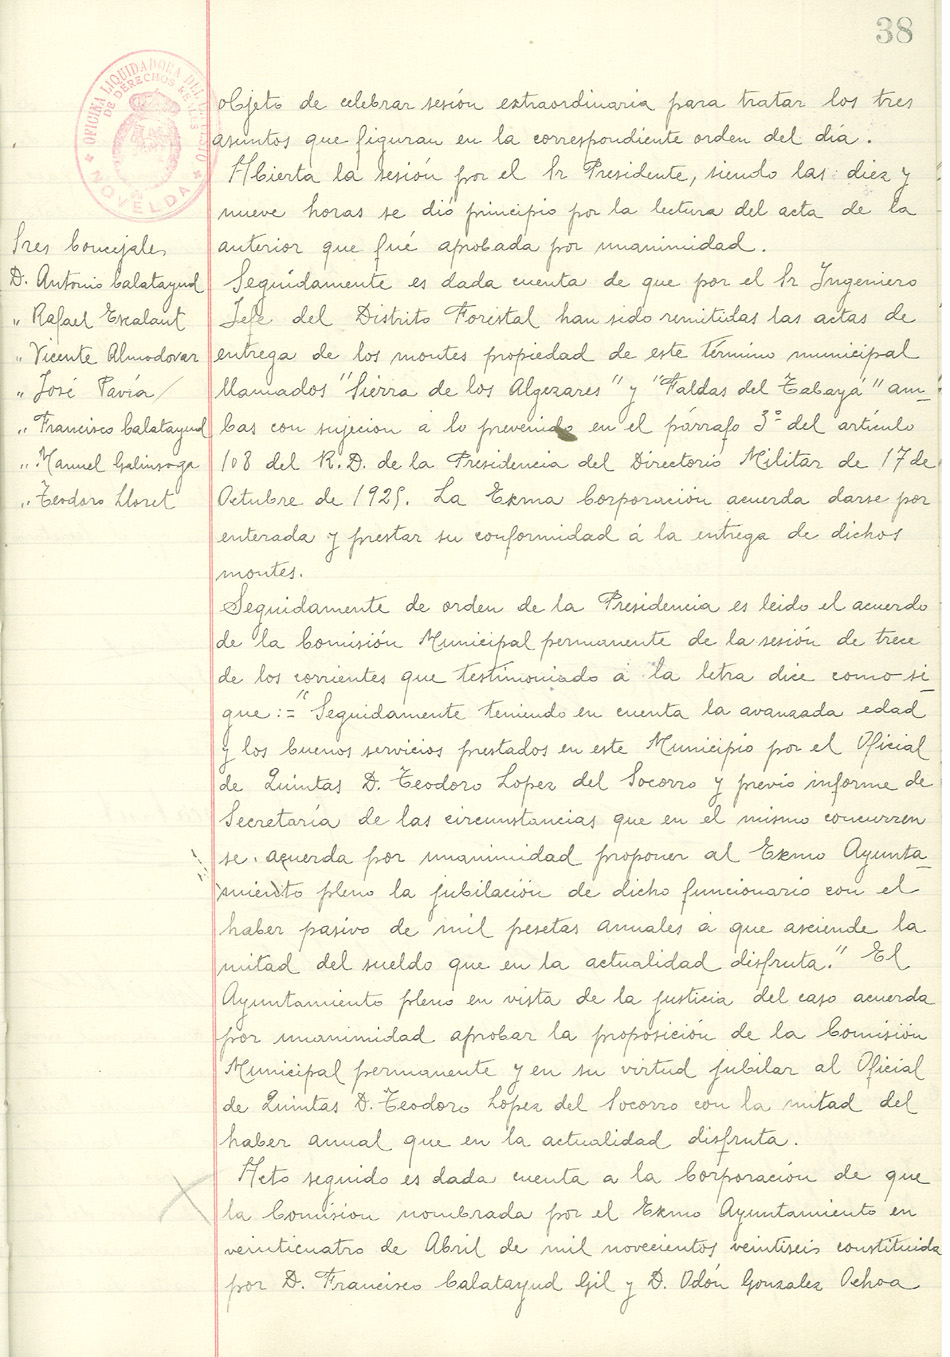 38
OFICINA LIQUIDADORA DEL
DE DERECHOS REALES
NOVELDA
objeto de celebrar sesión extraordinaria para tratar los tres
asuntos que figuran en la correspondiente orden del día.
Abierta la sesión por el Sr Presidente, siendo las diez y
nueve horas se dió principio por la lectura del acta de la
anterior que fué aprobada por unanimidad.
Sres Concejales
D. Antonio Calatayud
" Rafael Escalant
" Vicente Almodovar
" José Pavía
" Francisco Calatayud
" Manuel Galinsoga
" Teodoro Lloret
Seguidamente es dada cuenta de que por el Sr Ingeniero
Jefe del Distrito Forestal han sido remitidas las actas de
entrega de los montes propiedad de este término municipal
llamados "Sierra de los Algezares" y "Faldas del Tabayá" am-
bas con sujecion á lo prevenido en el párrafo 3º del artículo
108 del R.D. de la Presidencia del Directorio Militar de 17 de
Octubre de 1925. La Exma Corporación acuerda darse por
enterada y prestar su conformidad á la entrega de dichos
montes.
Seguidamente de orden de la Presidencia es leido el acuerdo
de la Comisión Municipal permanente de la sesión de trece
de los corrientes que testimoniado á la letra dice como si-
gue:= "Seguidamente teniendo en cuenta la avanzada edad
y los buenos servicios prestados en este Municipio por el Oficial
de Quintas D. Teodoro Lopez del Socorro y previo informe de
Secretaría de las circunstancias que en el mismo concurren
se acuerda por unanimidad proponer al Exmo Ayunta-
miento pleno la jubilación de dicho funcionario con el
haber pasivo de mil pesetas anuales á que asciende la
mitad del sueldo que en la actualidad disfruta." El
Ayuntamiento pleno en vista de la justicia del caso acuerda
por unanimidad aprobar la proposición de la Comisión
Municipal permanente y en su virtud jubilar al Oficial
de Quintas D. Teodoro Lopez del Socorro con la mitad del
haber anual que en la actualidad disfruta.
Acto seguido es dada cuenta a la Corporación de que
la Comision nombrada por el Exmo Ayuntamiento en
veinticuatro de Abril de mil novecientos veintiseis constituida
por D. Francisco Calatayud Gil y D. Odón Gonzalez Ochoa